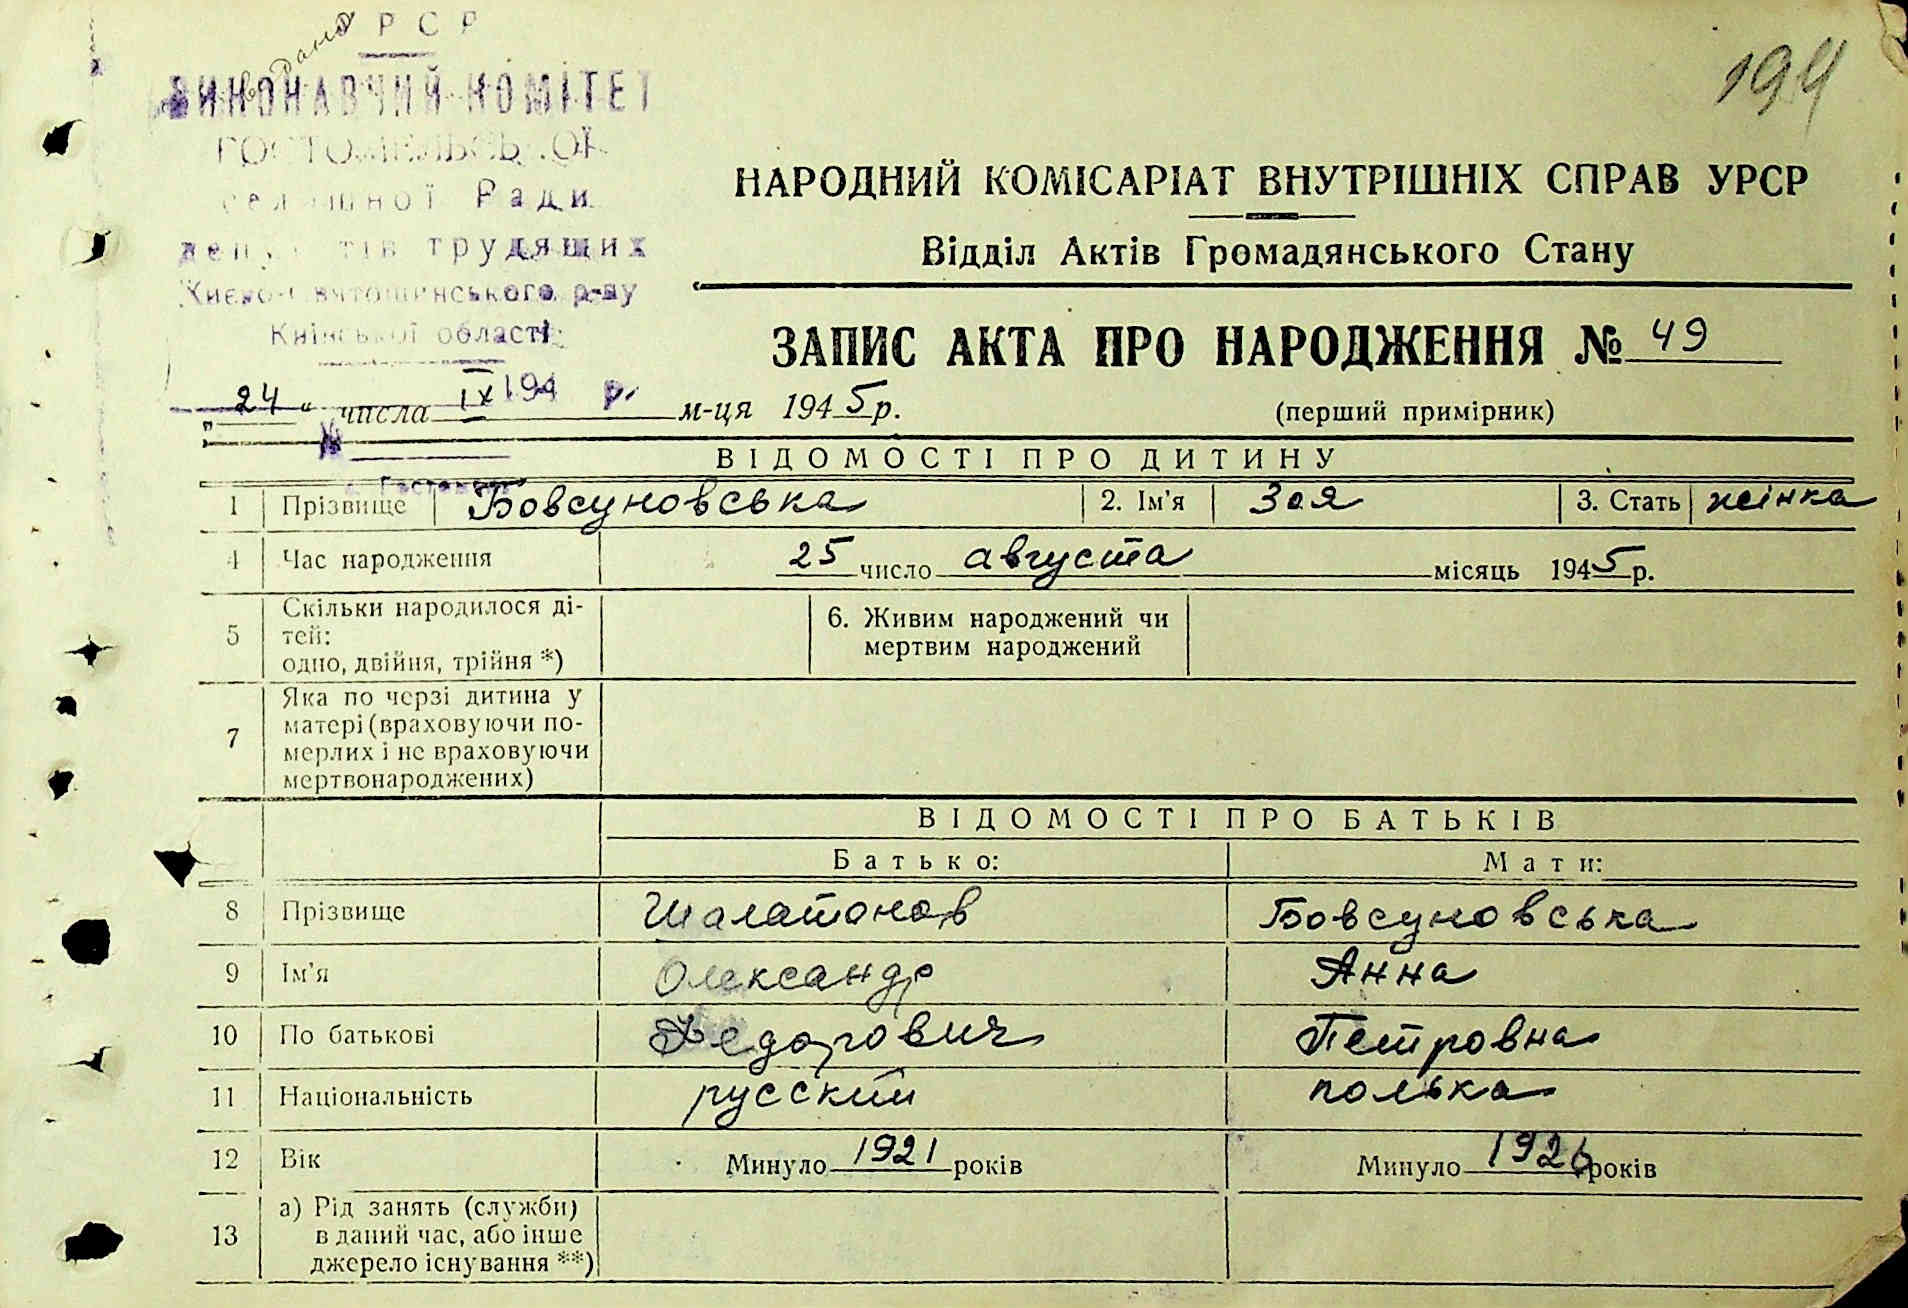 УРСР
видано
194
ВИКОНАВЧИЙ КОМІТЕТ
ГОСТОМЕЛЬСЬКОЇ
селищної Ради
депутатів трудящих
Києво-Святошинського р-ну
Київської області
НАРОДНИЙ КОМІСАРІАТ ВНУТРІШНІХ СПРАВ УРСР
Відділ Актів Громадянського Стану
ЗАПИС АКТА ПРО НАРОДЖЕННЯ № 49
194 р.
„24“ числа IX м-ця 1945 р.
(перший примірник)
№
ВІДОМОСТІ ПРО ДИТИНУ
1 Прізвище Бовсуновська 2. Ім'я Зоя 3. Стать жінка
4 Час народження 25 число августа місяць 1945 р.
5 Скільки народилося ді-
тей:
одно, двійня, трійня *)
6. Живим народжений чи
мертвим народжений
7 Яка по черзі дитина у
матері (враховуючи по-
мерлих і не враховуючи
мертвонароджених)
ВІДОМОСТІ ПРО БАТЬКІВ
Батько: Мати:
8 Прізвище Шалатонов Бовсуновська
9 Ім'я Олександр Анна
10 По батькові Федорович Петровна
11 Національність русский полька
12 Вік Минуло 1921 років Минуло 1926 років
13 а) Рід занять (служби)
в даний час, або інше
джерело існування **)